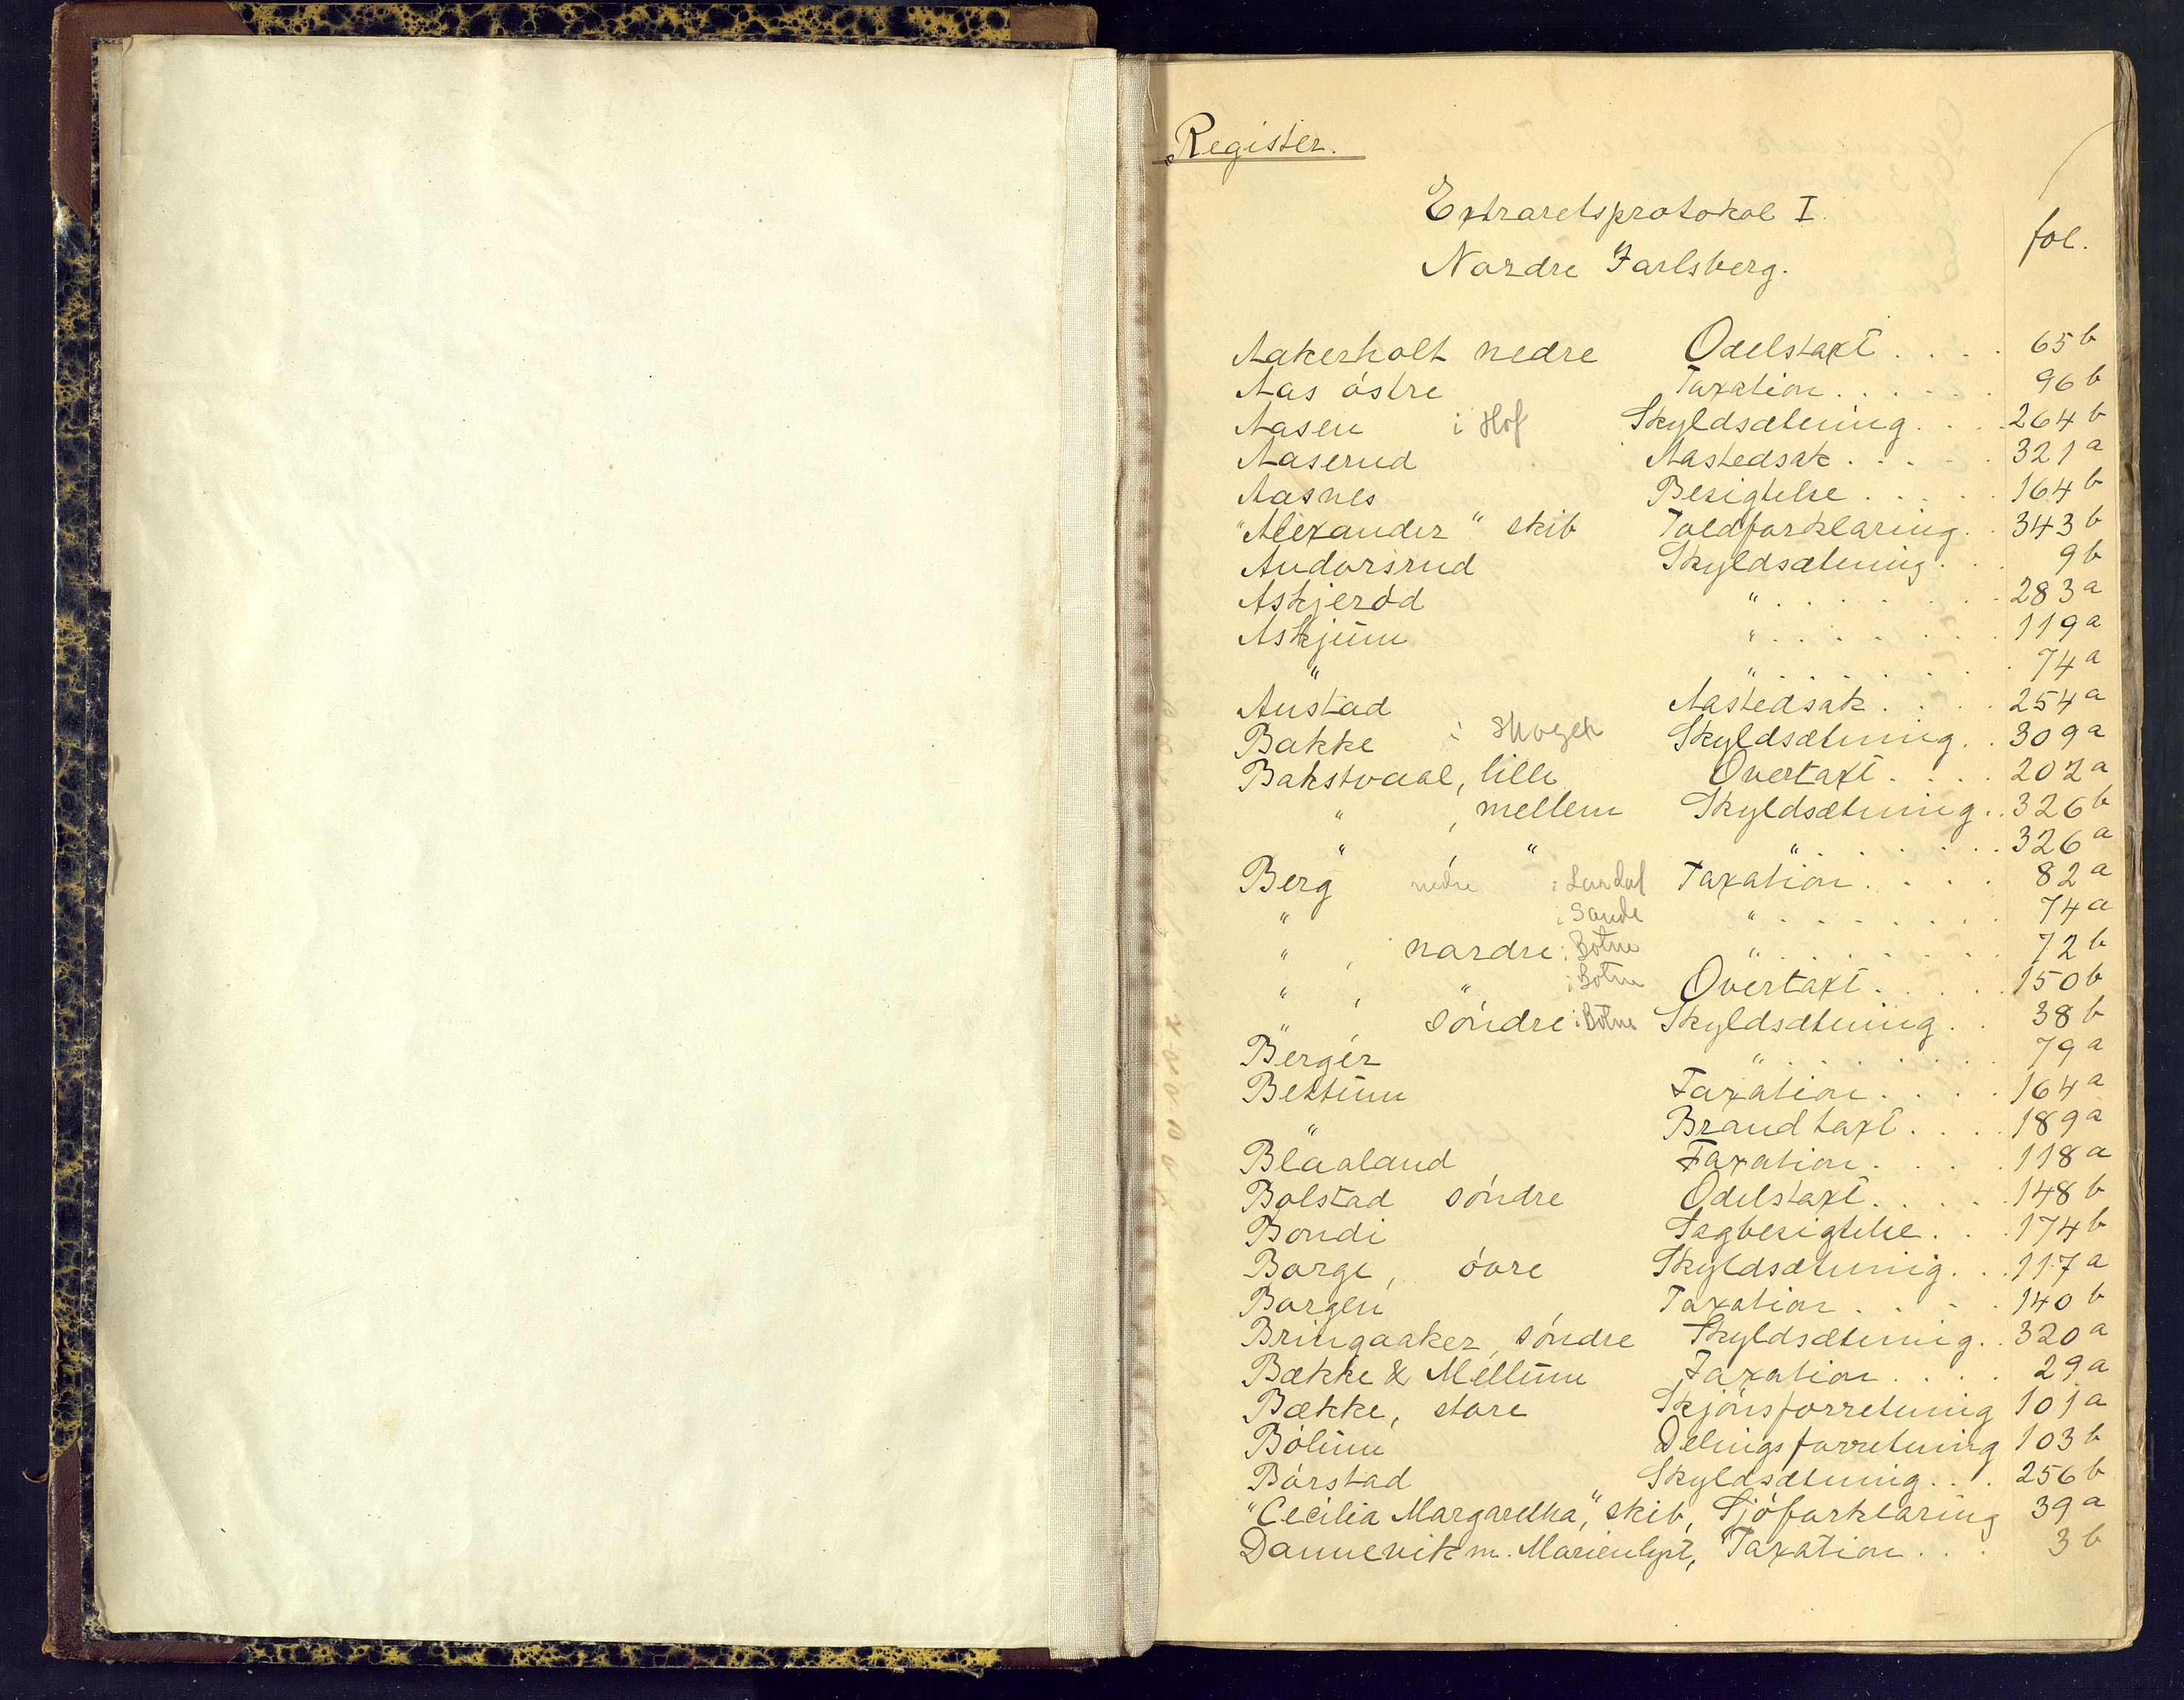 Register.
Extraretsprotokol I.
Nordre Jarlsberg.
fol.
Aakerholt nedre Odelstaxt . . . . 65 b
Aas östre Taxation . . . . . . 96 b
Aasen i Hof Skyldsætning . . . 264 b
Aaserud Aastedsak . . . . . 321 a
Aasnes Besigtelse . . . . . 164 b
"Alexander" skib Toldforklaring . . 343 b
Andorsrud Skyldsætning . . . 9 b
Askjeröd " . . . . . . . . 283 a
Askjum " . . . . . . . . 119 a
" " . . . . . . . . 74 a
Austad Aastedsak . . . . 254 a
Bakke i Skoger Skyldsætning . . 309 a
Bakstvaal, lille Overtaxt . . . . 202 a
" , mellem Skyldsætning . . 326 b
" " " . . . . . . . 326 a
Berg nedre i Laurdal Taxation . . . . 82 a
" i Sande " . . . . . . . . 74 a
" , nordre i Botne " . . . . . . . . 72 b
" , " i Botne Overtaxt . . . . . 150 b
" , söndre i Botne Skyldsætning . . 38 b
Berger " . . . . . . . . 79 a
Bettum Taxation . . . . 164 a
" Brandtaxt . . . . 189 a
Blaaland Taxation . . . . . 118 a
Bolstad söndre Odelstaxt . . . . . 148 b
Bondi Sagbesigtelse . . . 174 b
Borge, övre Skyldsætning . . . 117 a
Borgen Taxation . . . . . 140 b
Bringaaker, söndre Skyldsætning . . 320 a
Bække & Mellum Taxation . . . . 29 a
Bække, store Skjönsforretning 101 a
Bölum Delingsforretning 103 b
Börstad Skyldsætning . . . 256 b
"Cecilia Margaretha," skib, Sjöforklaring 39 a
Dannevik m. Marienlyst, Taxation . . . 3 b